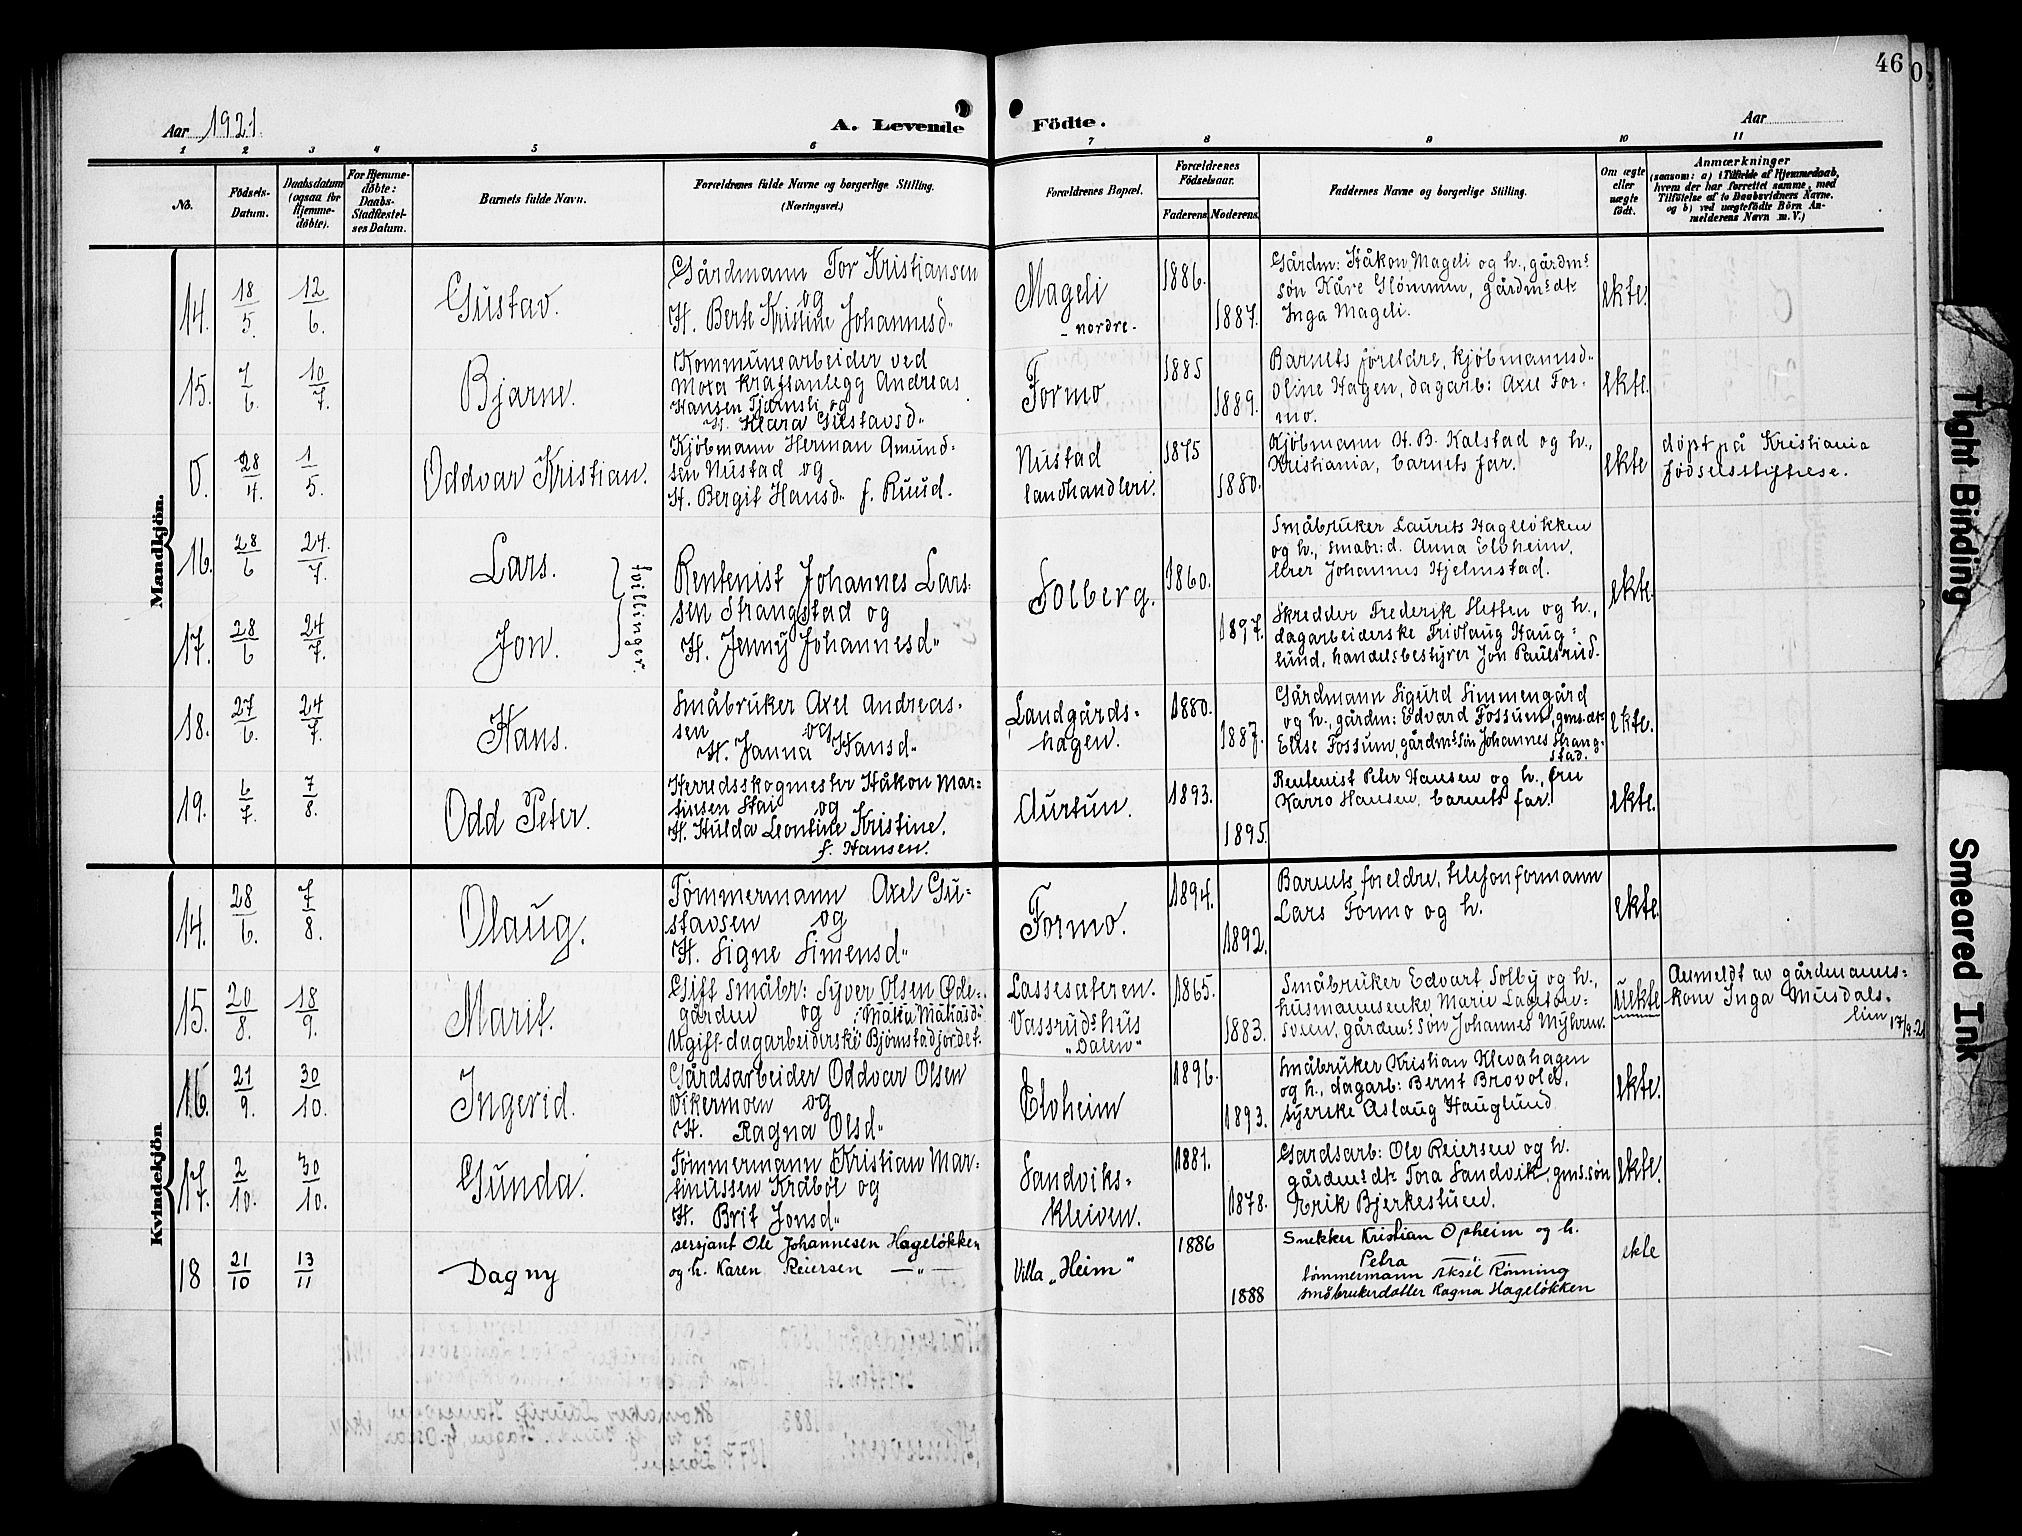 46
0
Aar 1921.
A. Levende
Födte.
Aar
1 2 3 4 5 6 7 8 9 10 11
No.
Födsels-
Datum.
Daabsdatum
(ogsaa for
Hjemme-
döbte).
For Hjemme-
döbte:
Daabs-
Stadfæstel-
ses Datum.
Barnets fulde Navn.
Forældrenes fulde Navne og borgerlige Stilling.
(Næringsvei.)
Forældrenes Bopæl.
Forældrenes
Födselsaar.
Faderens.
Moderens.
Faddernes Navne og borgerlige Stilling.
Om ægte
eller
uægte
födt.
Anmærkninger
(saasom: a) i Tilfælde af Hjemmedaab,
hvem der har forrettet samme, med
Tilföielse af to Daabsvidners Navne.
og b) ved uægtefödte Börn An-
melderens Navn m. V.)
Mandkjön.
14. 18/5 12/6. Gustav.
Gårdmann Tor Kristiansen
og
H. Berte Kristine Johannesd„
Mageli
- nordre -
1886.
1887.
Gårdm: Håkon Mageli og h., gårdms
søn Kåre Glömmen, gårdms dt:
Inga Mageli.
ekte.
15. 7/6. 10/7. Bjarne.
Kommunearbeider ved
Moxa kraftanlegg Andreas
Hansen Tjernsli og
H. Klara Gustavsd„
Formo
1885
1889.
Barnets foreldre, kjøbmannsd„
Oline Hagen, dagarb: Axel For-
mo.
ekte.
0. 28/4. 1/5. Oddvar Kristian.
Kjøbmann Herman Amund-
sen Nustad og
H. Bergit Hansd„ f. Ruud.
Nustad
landhandleri.
1875
1880.
Kjøbmann H. B. Kalstad og h.,
Kristiania, barnets far.
ekte
døpt på Kristiania
fødselsstiftelse.
16. 28/6 24./7. Lars.
17. 28/6 24/7. Jon.
tvillinger.
Rentenist Johannes Lars-
sen Strangstad og
H. Jenny Johannesd„
Solberg.
1860.
1897.
Småbruker Laurits Hageløkken
og h., småbr:d. Anna Elvheim,
lærer Johannes Hjelmstad.
Skredder Frederik Sletten og h.,
dagarbeiderske Fridlaug Haug-
lund, handelsbestyrer Jon Paulsrud.
ekte.
18. 27/6. 24/7. Hans.
Småbruker Axel Andreas-
sen og
H. Janna Hansd„
Landgårds-
hagen.
1880.
1887.
Gårdmann Sigurd Simmengård
og h., gårdm: Edvard Fossum, gms. dt:
Elise Fossum, gårdms søn Johannes Strang-
stad.
ekte.
19. 6/7. 7/8. Odd Peter.
Herredsskogmester Håkon Mar-
tinsen Stai og
H. Hulda Leontine Kristine,
f. Hansen.
Aurtun.
1893.
1895.
Rentenist Peter Hansen og h., fru
Karro Hansen, barnets far.
ekte.
Kvindekjön
14. 28/6. 7/8. Olaug.
Tømmermann Axel Gu-
stavsen og
H. Signe Simensd„
Formo.
1894.
1892.
Barnets foreldre, telefonformann
Lars Formo og h.
ekte.
15. 20/8. 18/9. Marit.
Gift småbr: Syver Olsen Øde-
gården og
Ugift dagarbeiderske Bjørnstadjordet.
Lassesæteren.
Vassrudshus
„Dalen“
1865.
1883.
Småbruker Edvart Solby og h.,
husmannsenke Marie
gårdms søn Johannes Myhren.
uekte
Anmeldt av gårdmanns-
kone Inga Musdals-
lien 17/9-21
16. 21/9. 30/10. Ingerid.
Gårdsarbeider Oddvar Olsen
Vikermoen og
H. Ragna Olsd„
Elvheim
1896.
1893.
Småbruker Kristian Klevahagen
og h., dagarb: Bernt Brovold,
syerske Aslaug Hauglund
ekte.
17. 2/10. 30/10. Gunda.
Tømmermann Kristian Mar-
tinussen Kråbøl og
H. Brit Jonsd„
Sandviks-
kleiven.
1881.
1878.
Gardsarb: Ole Reiersen og h.
gårdms dt: Tora Sandvik, gms. søn
Erik Bjerkestuen.
ekte.
18 21/10 13/11 Dagny
sersjant Ole Johannesen Hageløkken
og h. Karen Reiersen —„—
Villa „Heim“
1886
1888
Snekker Kristian Opheim og h.
Petra —„—
tømmermann Aksel Rønning
småbrukerdatter Ragna Hageløkken
ekte
Tight Binding
Smeared Ink